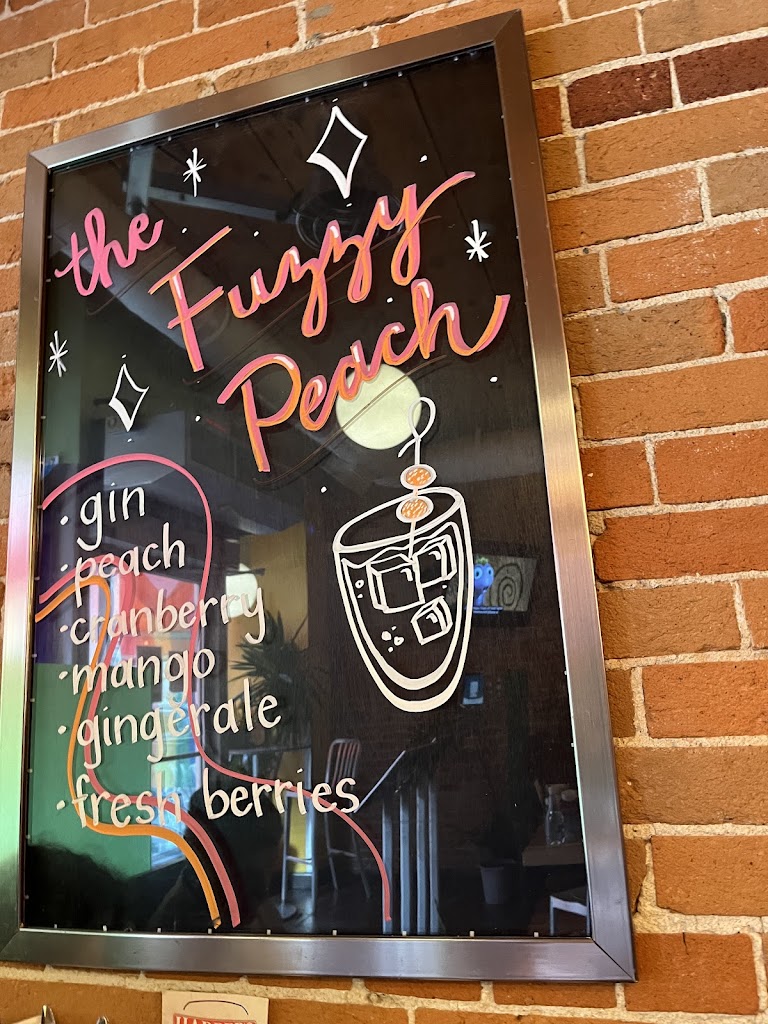 the
Fuzzy
Peach
· gin
· peach
· cranberry
· mango
· gingerale
· fresh berries